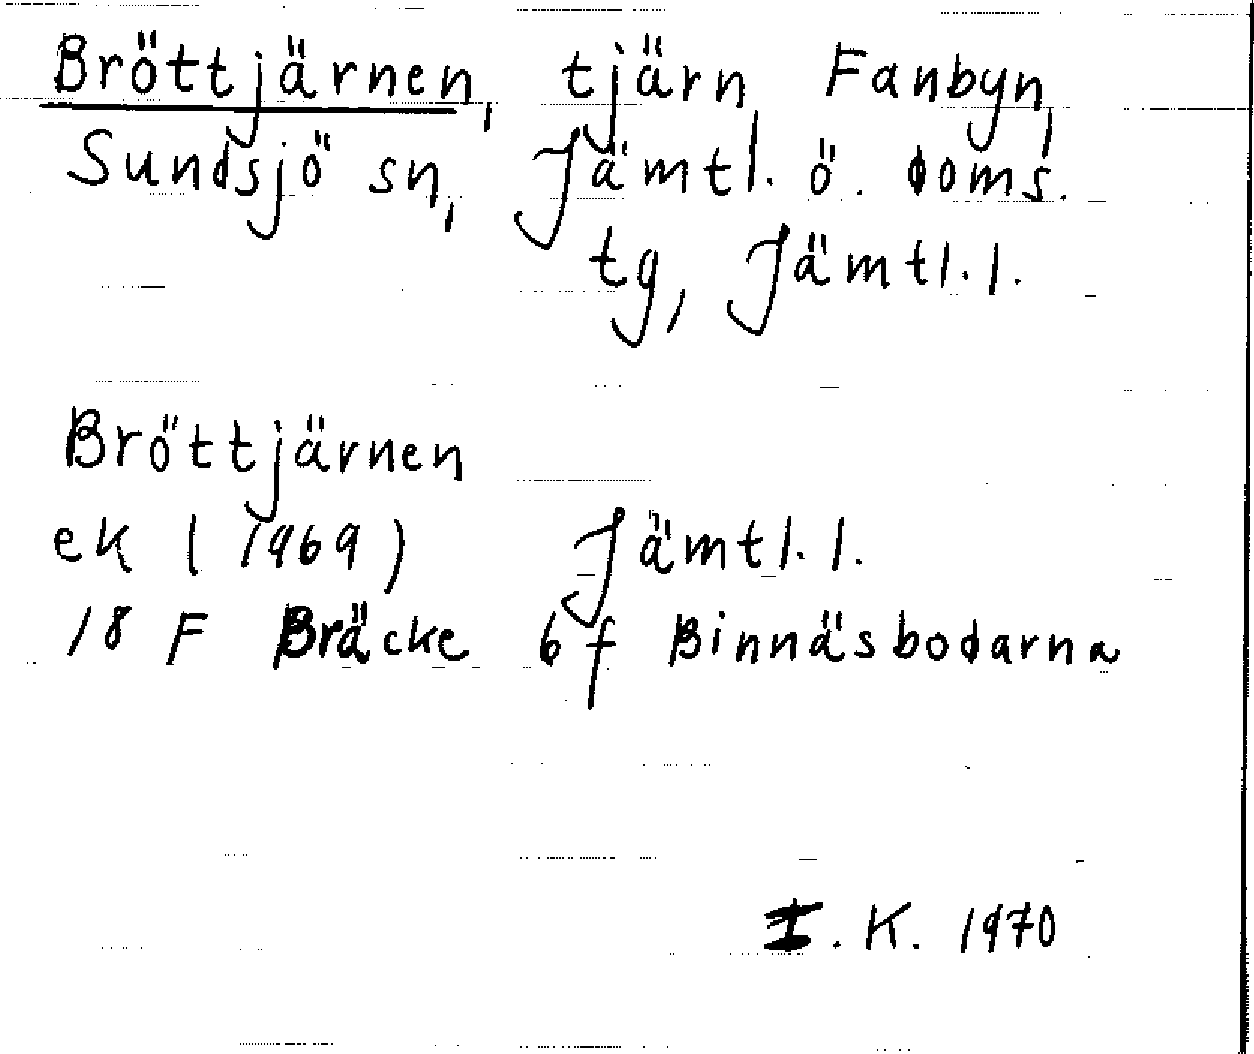 Bröttjärnen, tjärn, Fanbyn,
Sundsjö sn, Jämtl. ö. doms.
tg, Jämtl. l.
Bröttjärnen
ek (1969) Jämtl. l.
18 F Bräcke 6 f Binnäsbodarna
I. K. 1970